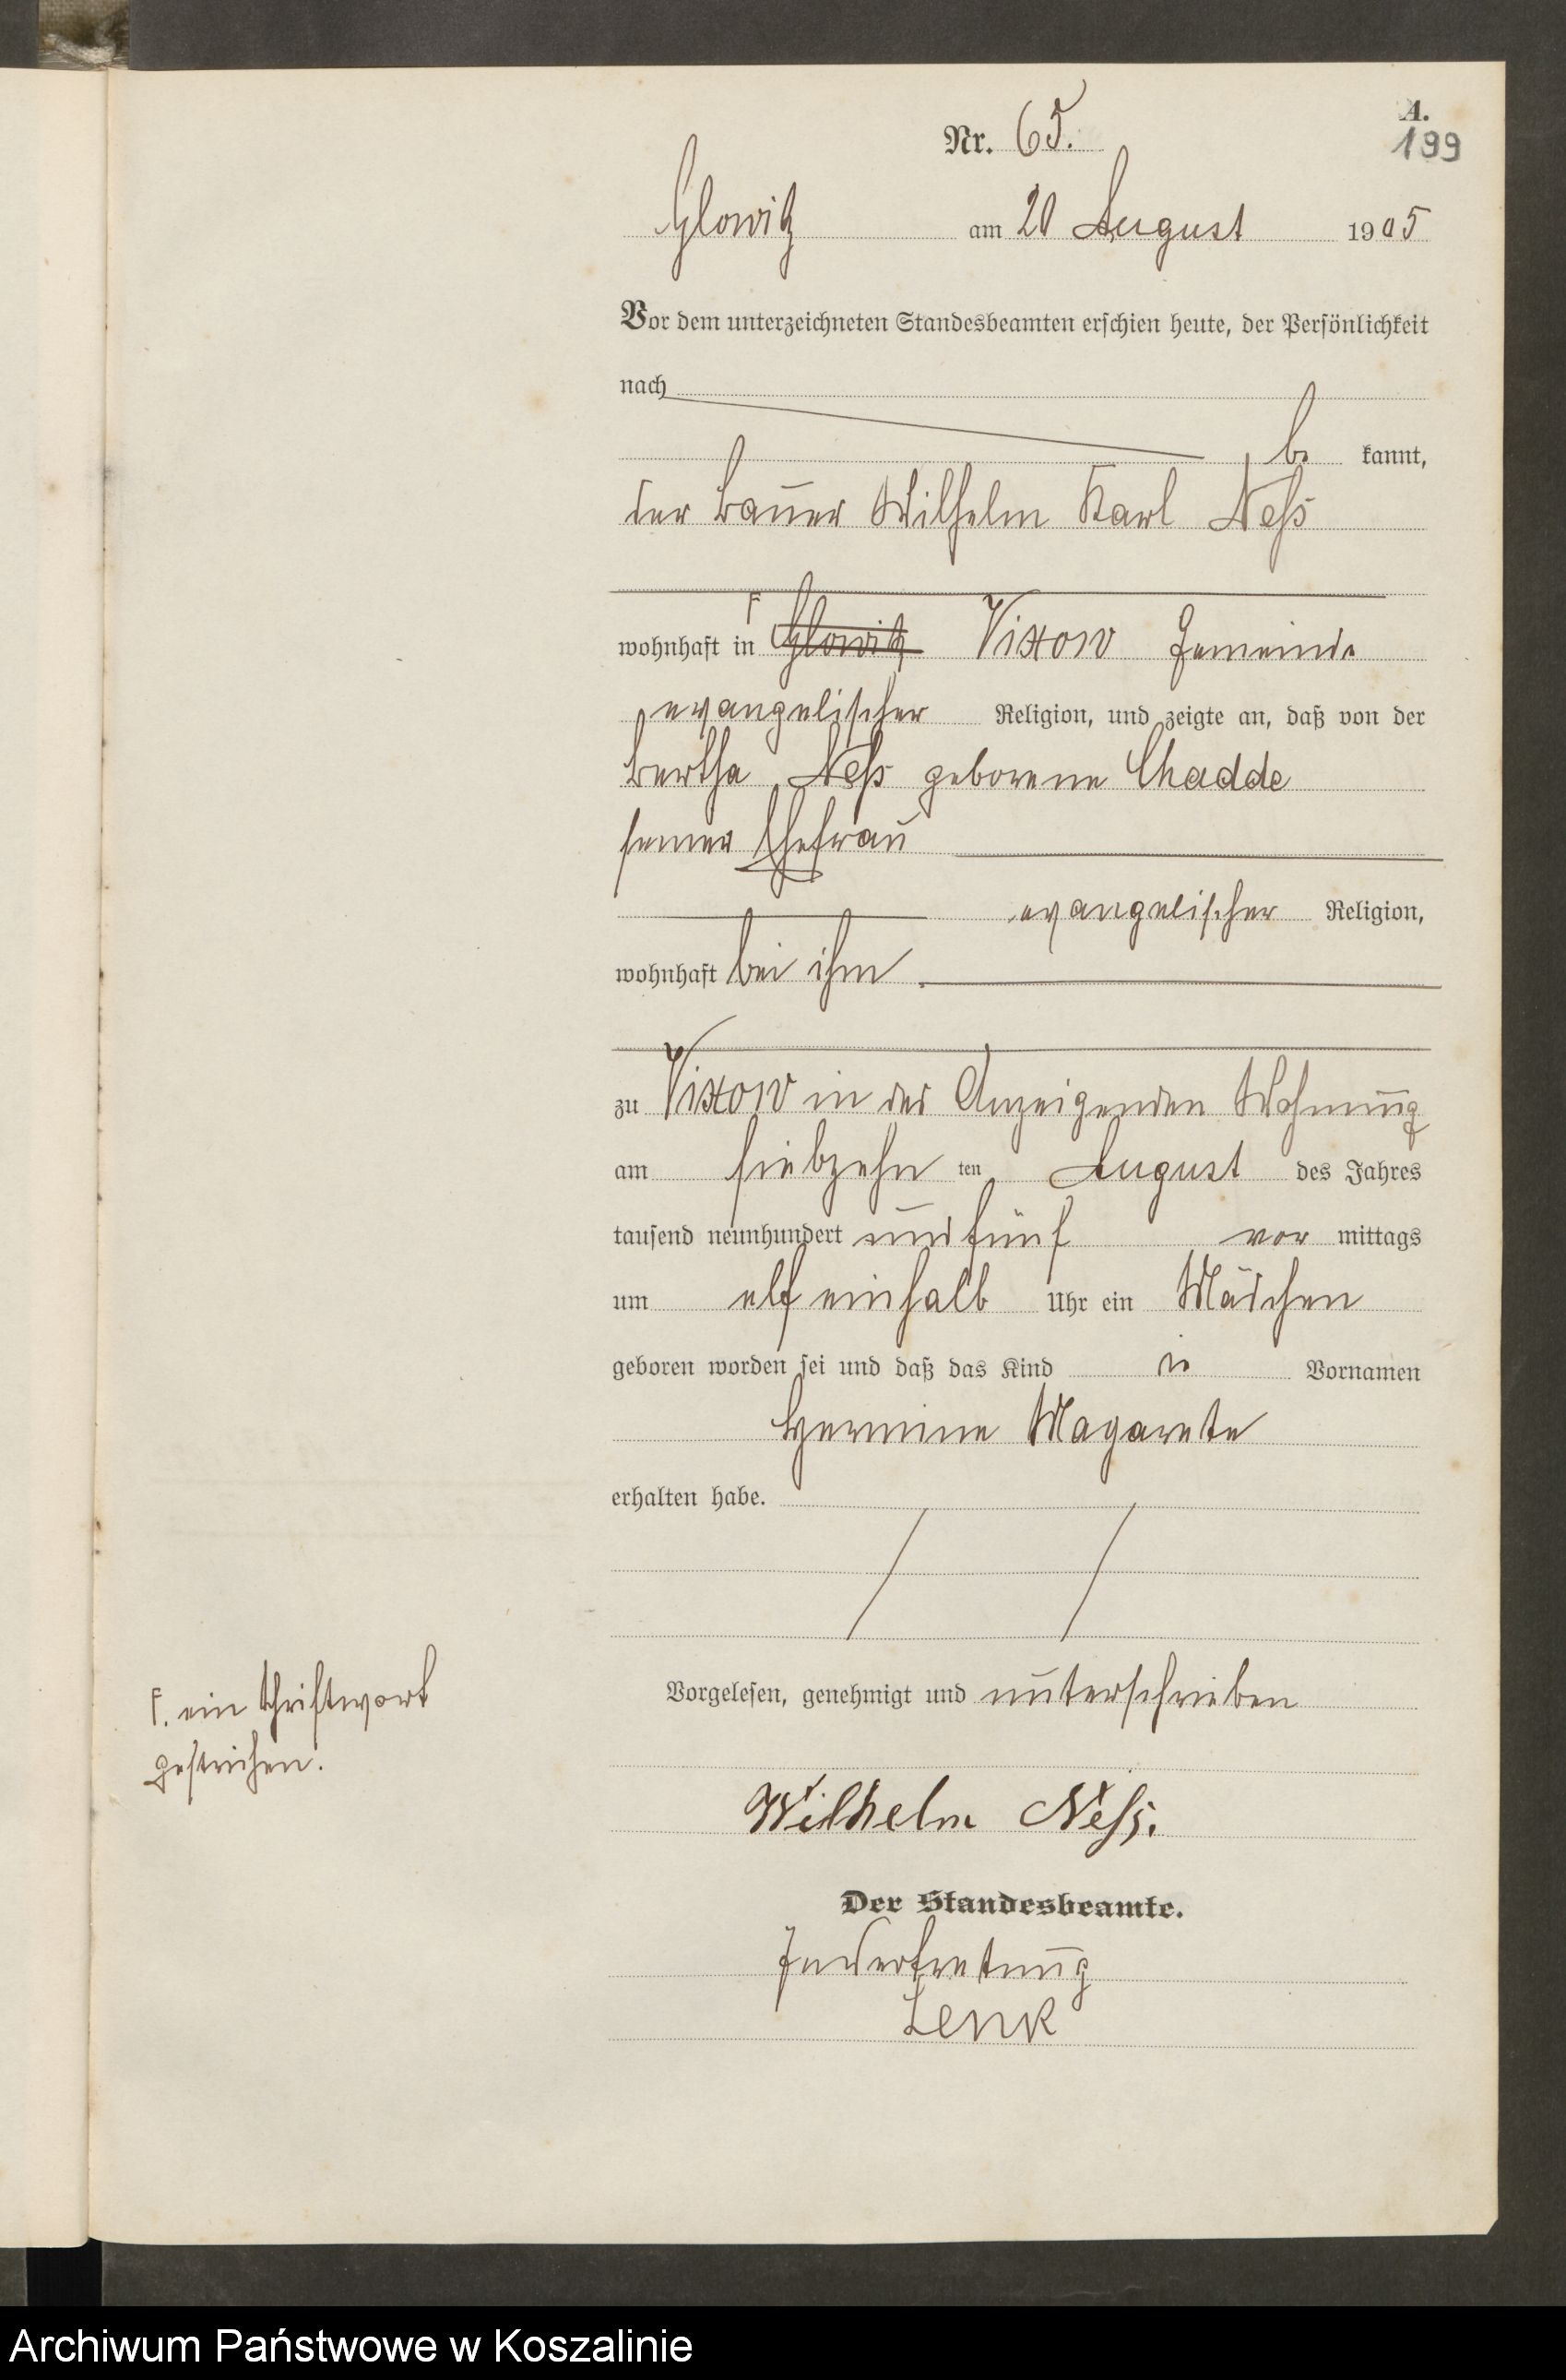 A.
199
Nr. 65.
Glowitz am 20 August 1905
Vor dem unterzeichneten Standesbeamten erschien heute, der Persönlichkeit
nach
be kannt,
der Bauer Wilhelm Karl Neß
wohnhaft in F Glowitz Vixow Gemeinde
evangelischer Religion, und zeigte an, daß von der
Bertha Neß geborene Chadde
seiner Ehefrau
evangelischer Religion,
wohnhaft bei ihm
zu Vixow in des Anzeigenden Wohnung
am siebzehn ten August des Jahres
tausend neunhundert und fünf vor mittags
um elf einhalb Uhr ein Mädchen
geboren worden sei und daß das Kind die Vornamen
Hermine Magarete
erhalten habe.
F. ein Schriftwort
gestrichen.
Vorgelesen, genehmigt und unterschrieben
Wilhelm Neß.
Der Standesbeamte.
In Vertretung
Lenk
Archiwum Państwowe w Koszalinie